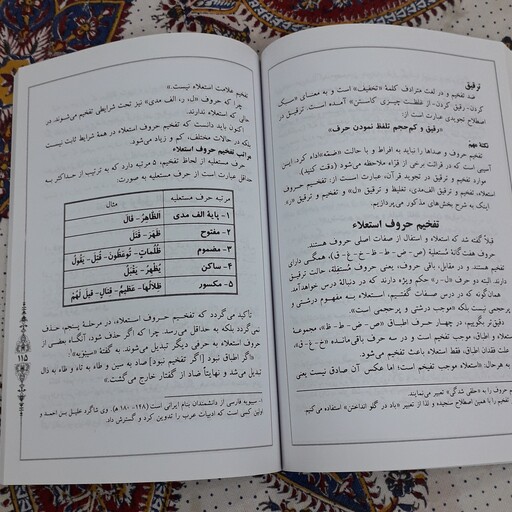 ترقیق
ضد تفخیم و در لغت مترادف کلمهٔ «تخفیف» است و به معنای «سبک
کردن، رقیق کردن، از غلظت چیزی کاستن» آمده است. ترقیق در
اصطلاح تجویدی عبارت است از:
«رقیق و کم‌حجم تلفظ نمودن حرف»
نکتهٔ مهم
تفخیم حروف و صداها را نباید به افراط و با حالت «ضمّه» اداء کرد. این
آسیبی است که در قرائت برخی از قرّاء ملاحظه می‌شود (دقت کنید).
موارد تفخیم و ترقیق در تجوید قرآن، عبارت است از: تفخیم حروف
استعلاء، تفخیم و ترقیق الف‌مدی، تغلیظ و ترقیق «ل» و تفخیم و ترقیق «ر»
اینک به شرح بخش‌های مذکور می‌پردازیم.
تفخیم حروف استعلاء
قبلاً گفته شد که استعلاء و استفال از صفات اصلی حروف هستند
حروف هفت‌گانهٔ مُستعلیه (ص - ض - ط - ظ - خ - غ - ق)، همگی دارای
تفخیم هستند و در مقابل، باقی حروف، یعنی حروف مُستَفِله، حالت ترقیق
دارند. البته دو حرف «ل - ر» حکم ویژه دارند که در دنباله درس خواهد آمد.
همان‌گونه که در درس صفات گفتیم، استعلاء به مفهوم درشتی و
پرحجمی نیست بلکه «موجب درشتی و پرحجمی است.»
دقیق‌تر بگوییم، در چهار حرف اطباق (ص - ض - ط - ظ)، مجموعهٔ
استعلاء و اطباق، موجب تفخیم است و در سه حرف باقی‌مانده (خ - غ - ق)،
علت فقدان اطباق، فقط استعلاء باعث تفخیم می‌شود.
هرحال استعلاء، موجب تفخیم است؛ اما عکس آن صادق نیست یعنی
حروف را به «حلقی شدگی» تعبیر می‌نمایند.
تفخیم را با همین اصطلاح سنجیده و لذا از تعبیر «باد در گلو انداختن» استفاده می‌کنیم.
تفخیم علامت استعلاء نیست.»
چرا که حروف «ل، ر، الف مدی» نیز تحت شرایطی تفخیم می‌شوند، در
حالی که استعلاء ندارند.
اکنون باید دانست که تفخیم حروف استعلاء در همهٔ شرایط ثابت نیست
بلکه در حالات مختلف، کم و زیاد می‌شود.
مراتب تفخیم حروف استعلاء
حرف مستعلیه از لحاظ تفخیم، ۵ مرتبه دارد که به ترتیب از حداکثر به
حداقل عبارت است از حرف مستعلیه به صورت:
مرتبه حرف مستعلیه مثال
۱- پایهٔ الف مدی اَلظّاهِرُ - قالَ
۲- مفتوح ظَهَرَ - قَتَلَ
۳- مضموم ظُلُماتٍ - تُوعَظُونَ - قُتِلَ - یَقُولُ
۴- ساکن یُظْهِرُ - یَقْبَلُ
۵- مکسور ظِلالُها - عَظیمٌ - قِتالٍ - قیلَ لَهُمْ
تأکید می‌گردد که تفخیم حروف استعلاء، در مرحلهٔ پنجم، حذف
نمی‌گردد بلکه به حداقل می‌رسد. چرا که اگر حذف شود، آنگاه بعضی از
حروف استعلاء به حرفی دیگر تبدیل می‌شوند. به گفتهٔ «سیبویه»
«اگر اطباق نبود [اگر تفخیم نبود] صاد به سین و طاء به تاء و ظاء به ذال
تبدیل می‌شد و نهایتاً ضاد از گفتار خارج می‌گشت.»
۱- سیبویه فارسی از دانشمندان بنام ایرانی است (۱۴۸- ۱۸۰ ه). وی شاگرد خلیل بن احمد و
اولین کسی است که ادبیات عرب را تدوین کرد و گسترش داد.
۱۱۵